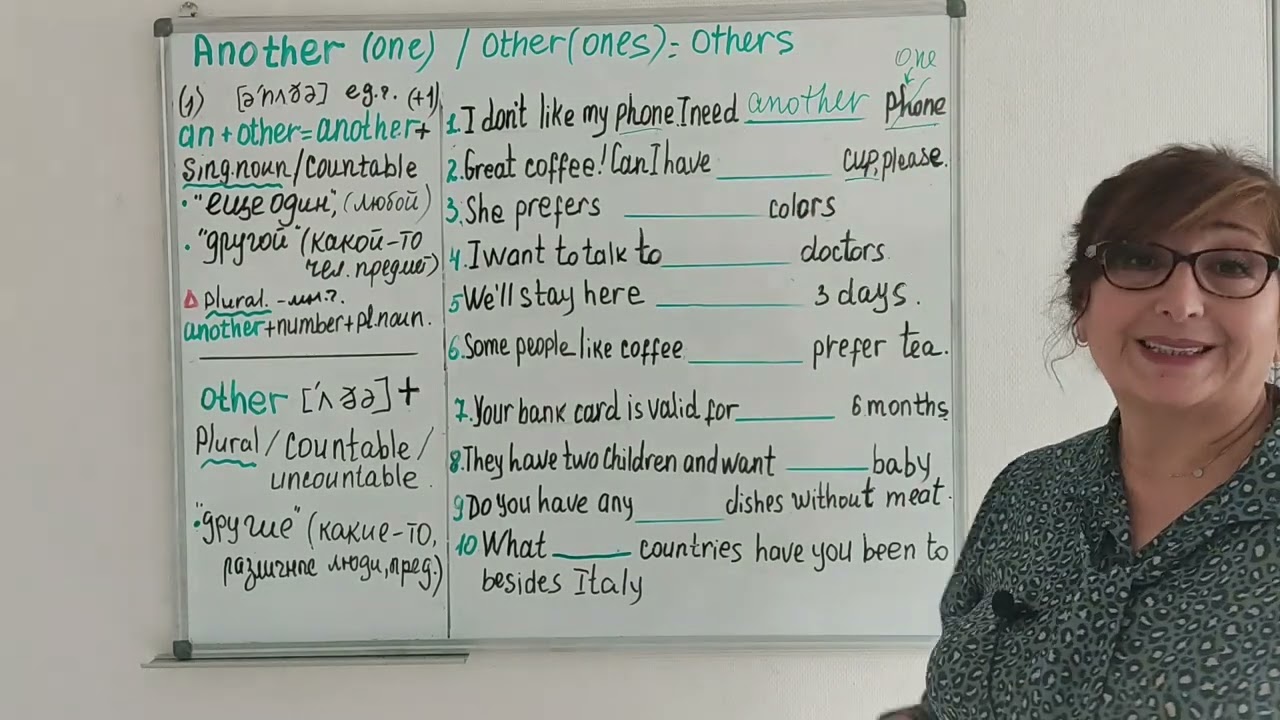 Another (one) / Other (ones) = Others
(1) [ə'nʌðə] ед.ч. (+1)
an + other = another +
sing.noun/countable
• "еще один", (любой)
• "другой" (какой-то
чел. предмет)
Δ plural. - мн.ч.
another + number + pl.noun.
other ['ʌðə] +
Plural / countable /
uncountable.
• "другие" (какие-то,
различные люди, пред.)
one
1. I don't like my phone. I need another phone
2. Great coffee! Can I have ______ cup, please.
3. She prefers ______ colors
4. I want to talk to ______ doctors
5 We'll stay here ______ 3 days.
6. Some people like coffee ______ prefer tea.
7. Your bank card is valid for ______ 6 months,
8. They have two children and want ______ baby
9 Do you have any ______ dishes without meat.
10 What ______ countries have you been to
besides Italy